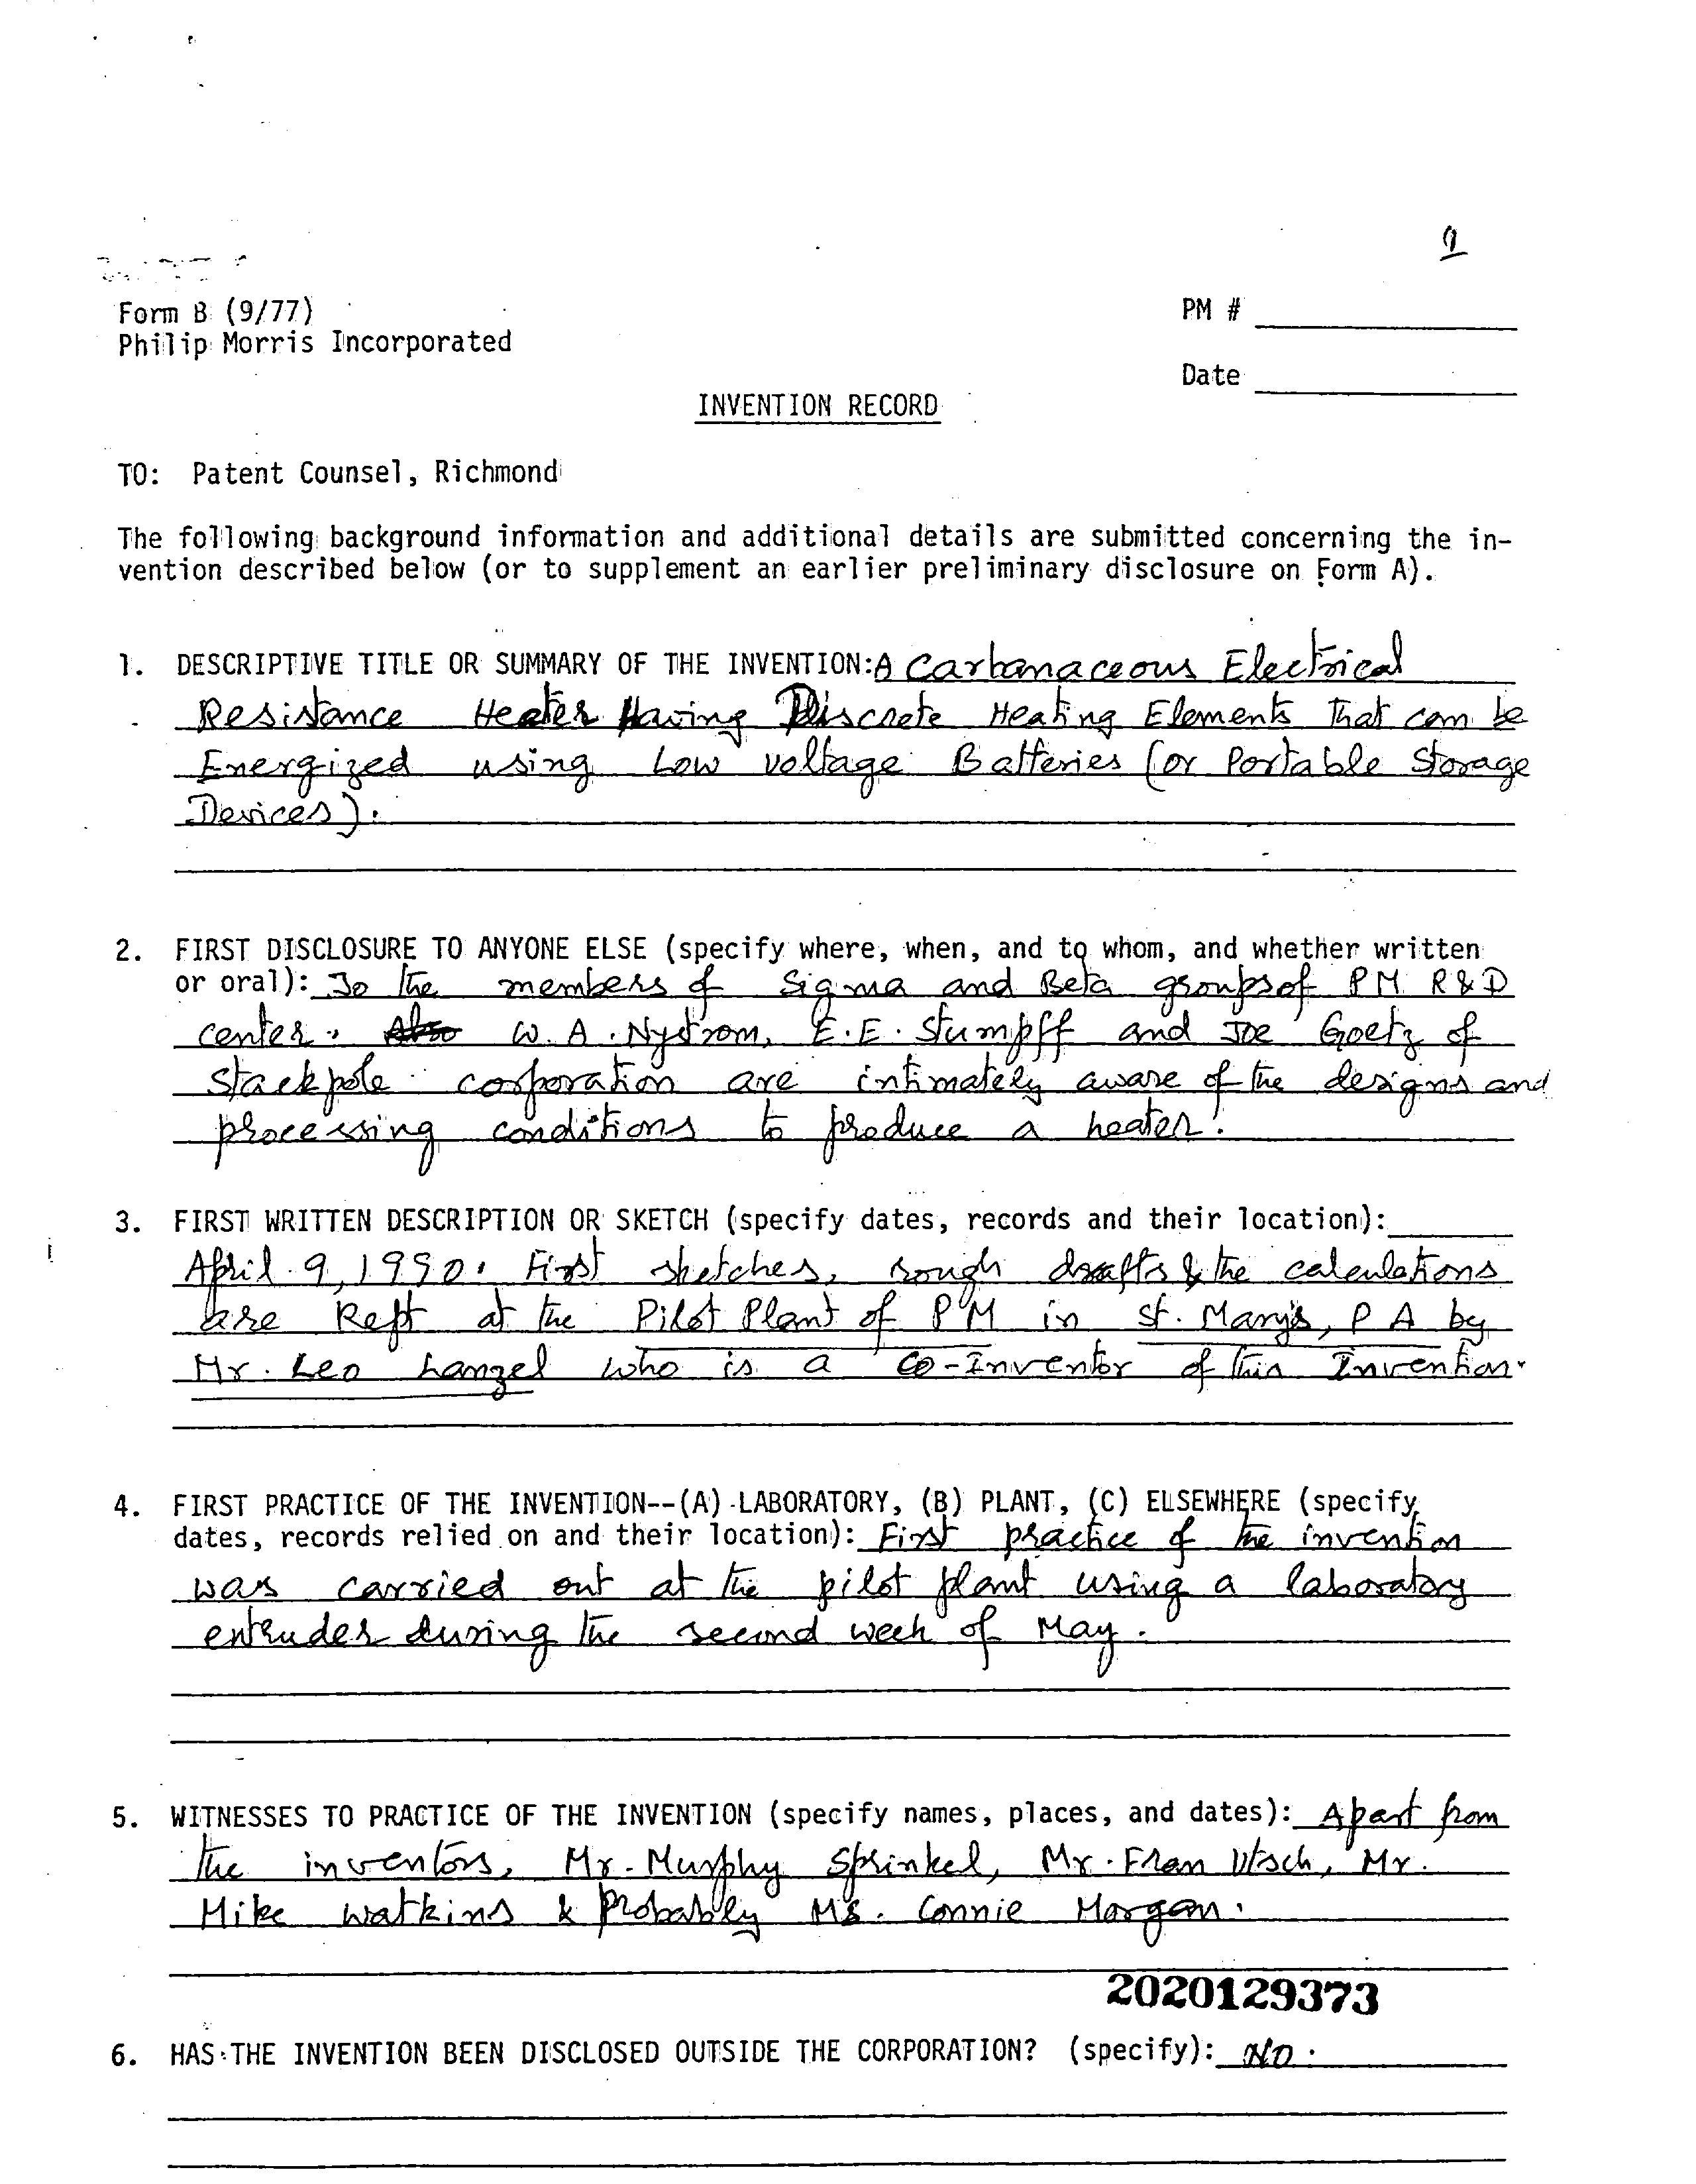 9
Form B (9/77)
Philip Morris Incorporated
PM #
Date
INVENTION RECORD
TO: Patent Counsel, Richmond
The following background information and additional details are submitted concerning the in-
vention described below (or to supplement an earlier preliminary disclosure on Form A).
1. DESCRIPTIVE TITLE OR SUMMARY OF THE INVENTION: A Carbanaceous Electrical
Resistance Heater Having Discrete Heating Elements That can be
Energized using Low voltage Batteries (or Portable Storage
Devices).
2. FIRST DISCLOSURE TO ANYONE ELSE (specify where, when, and to whom, and whether written
or oral): To the members of Sigma and Beta groups of PM R&D
center. Also W. A. Nystrom, E. E. Stumpff and Joe Goetz of
Stackpole corporation are intimately aware of the designs and
processing conditions to produce a heater.
3. FIRST WRITTEN DESCRIPTION OR SKETCH (specify dates, records and their location):
April 9, 1990. First sketches, rough drafts & the calculations
are Kept at the Pilot Plant of PM in St. Mary's, PA by
Mr. Leo Langel who is a Co-Inventor of this Invention.
4. FIRST PRACTICE OF THE INVENTION--(A) LABORATORY, (B) PLANT, (C) ELSEWHERE (specify,
dates, records relied on and their location): First practice of the invention
was carried out at the pilot plant using a laboratory
extruder during the second week of May.
5. WITNESSES TO PRACTICE OF THE INVENTION (specify names, places, and dates): Apart from
the inventors, Mr. Murphy Sprinkel, Mr. Fran Utsch, Mr.
Mike Watkins & Probably Ms. Connie Morgan.
2020129373
6. HAS THE INVENTION BEEN DISCLOSED OUTSIDE THE CORPORATION? (specify): NO.